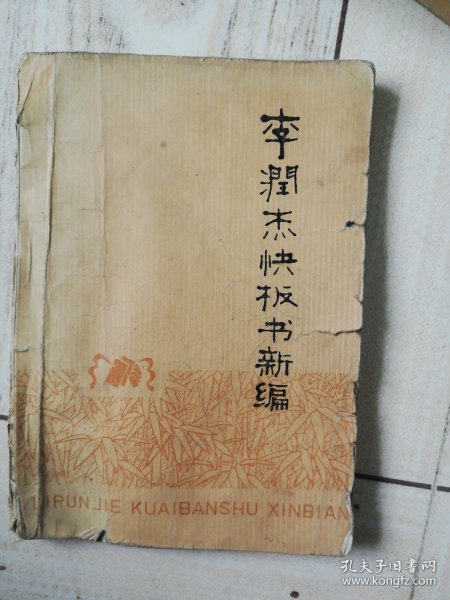 李潤杰快板书新编
LIRUNJIE KUAIBANSHU XINBIAN
孔夫子旧书网
www.kongfz.com